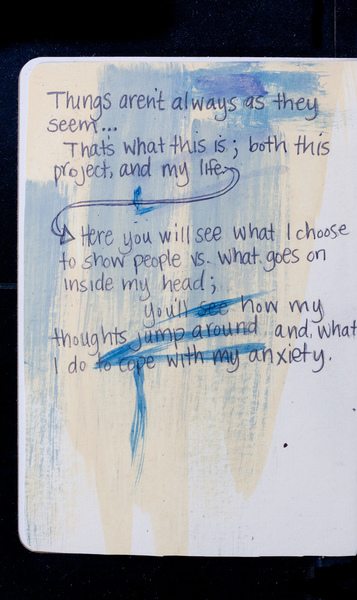 Things aren't always as they
seem...
That's what this is; both this
project, and my life
Here you will see what I choose
to show people vs. what goes on
inside my head;
you'll see how my
thoughts jump around and, what
I do to cope with my anxiety.